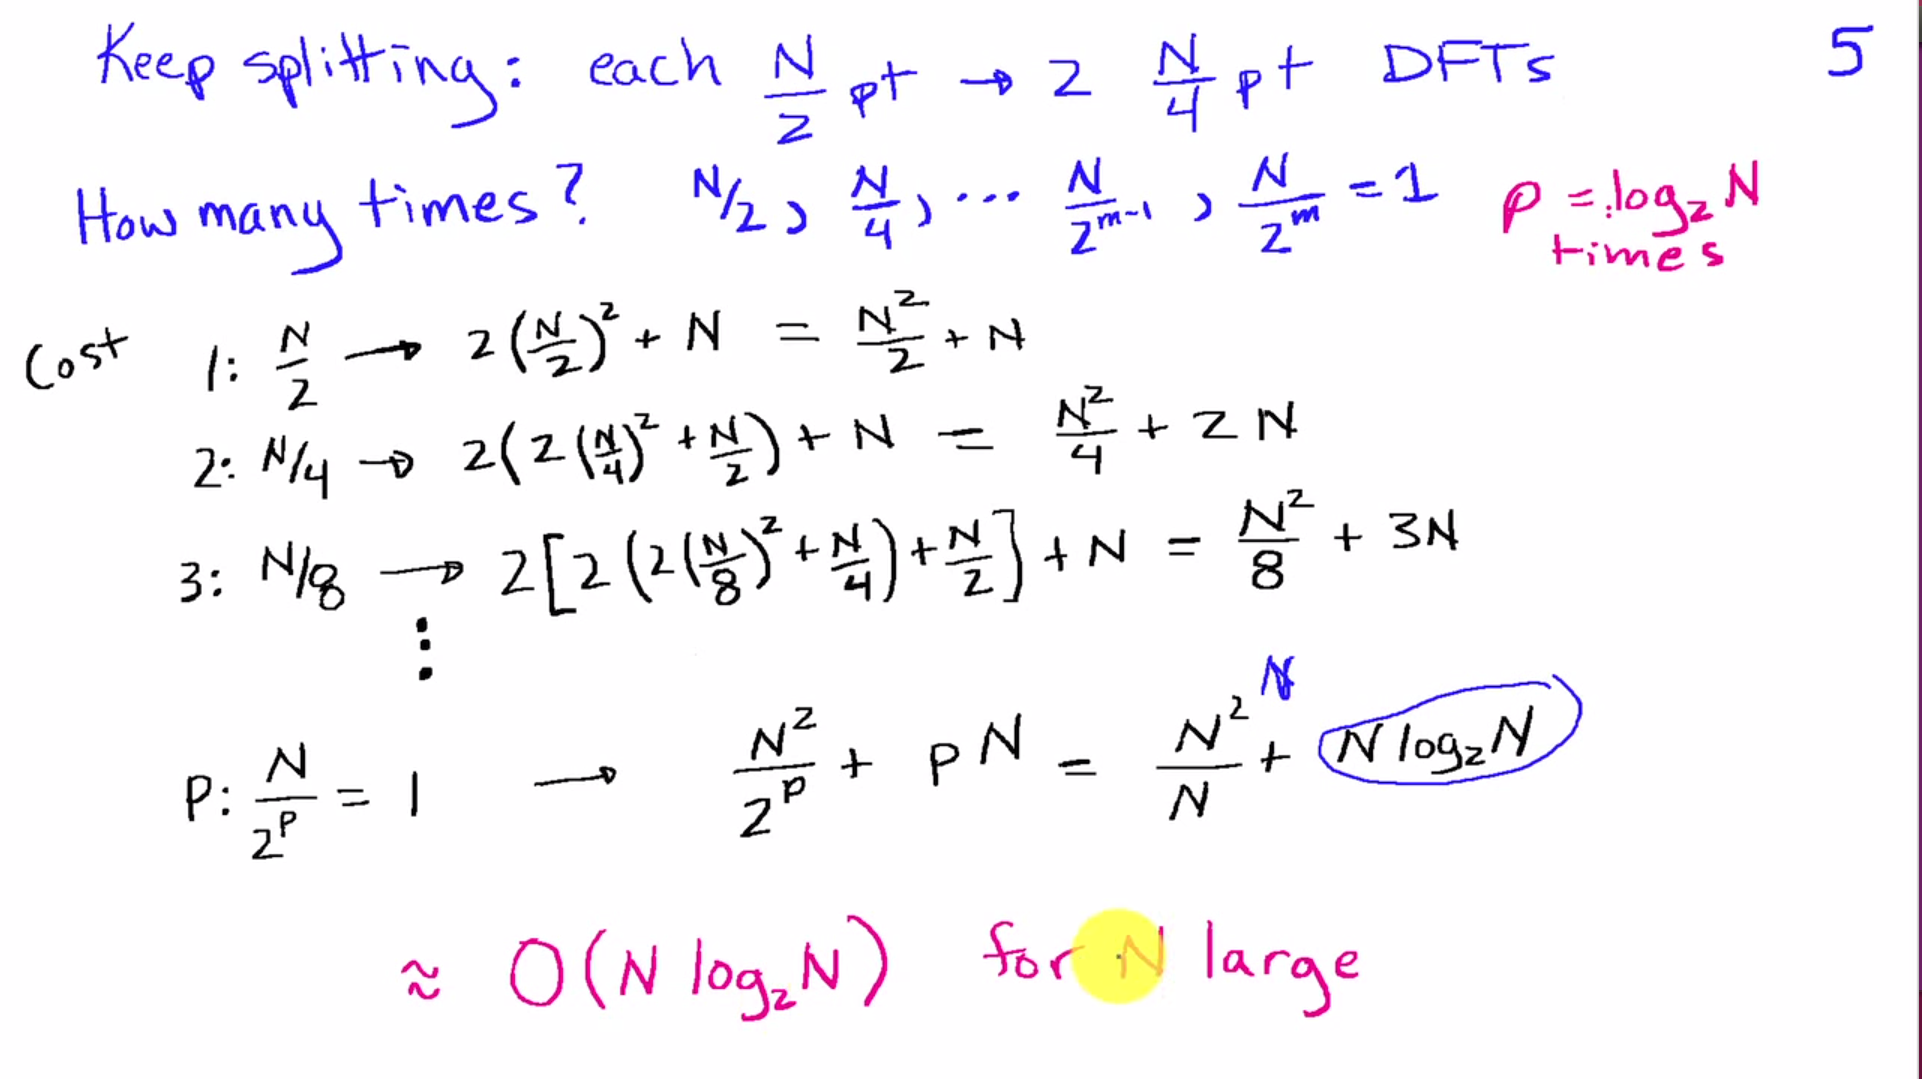 Keep splitting: each N/2 pt → 2 N/4 pt DFTs 5
How many times? N/2, N/4, ... N/2^(m-1), N/2^m = 1 p = log₂N
times
Cost 1: N/2 → 2(N/2)² + N = N²/2 + N
2: N/4 → 2(2(N/4)² + N/2) + N = N²/4 + 2N
3: N/8 → 2[2(2(N/8)² + N/4) + N/2] + N = N²/8 + 3N
⋮
N
P: N/2^p = 1 → N²/2^p + pN = N²/N + N log₂N
≈ O(N log₂N) for N large